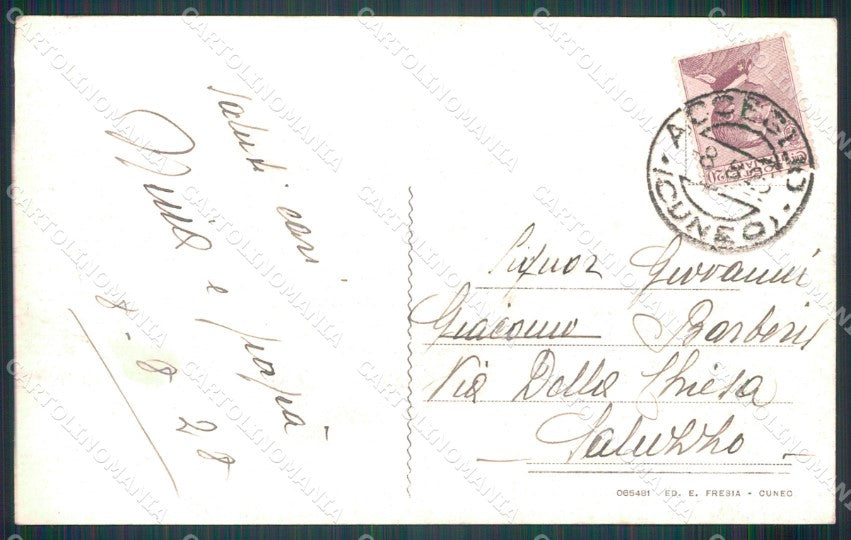 Saluti cari
e papà
8-8 28
Signor Giovanni
Giacomo Barberis
Via Della Chiesa
Saluzzo
ACCEGLIO
(CUNEO)
20
065481 ED. E. FREBIA - CUNEO
CARTOLINOMANIA